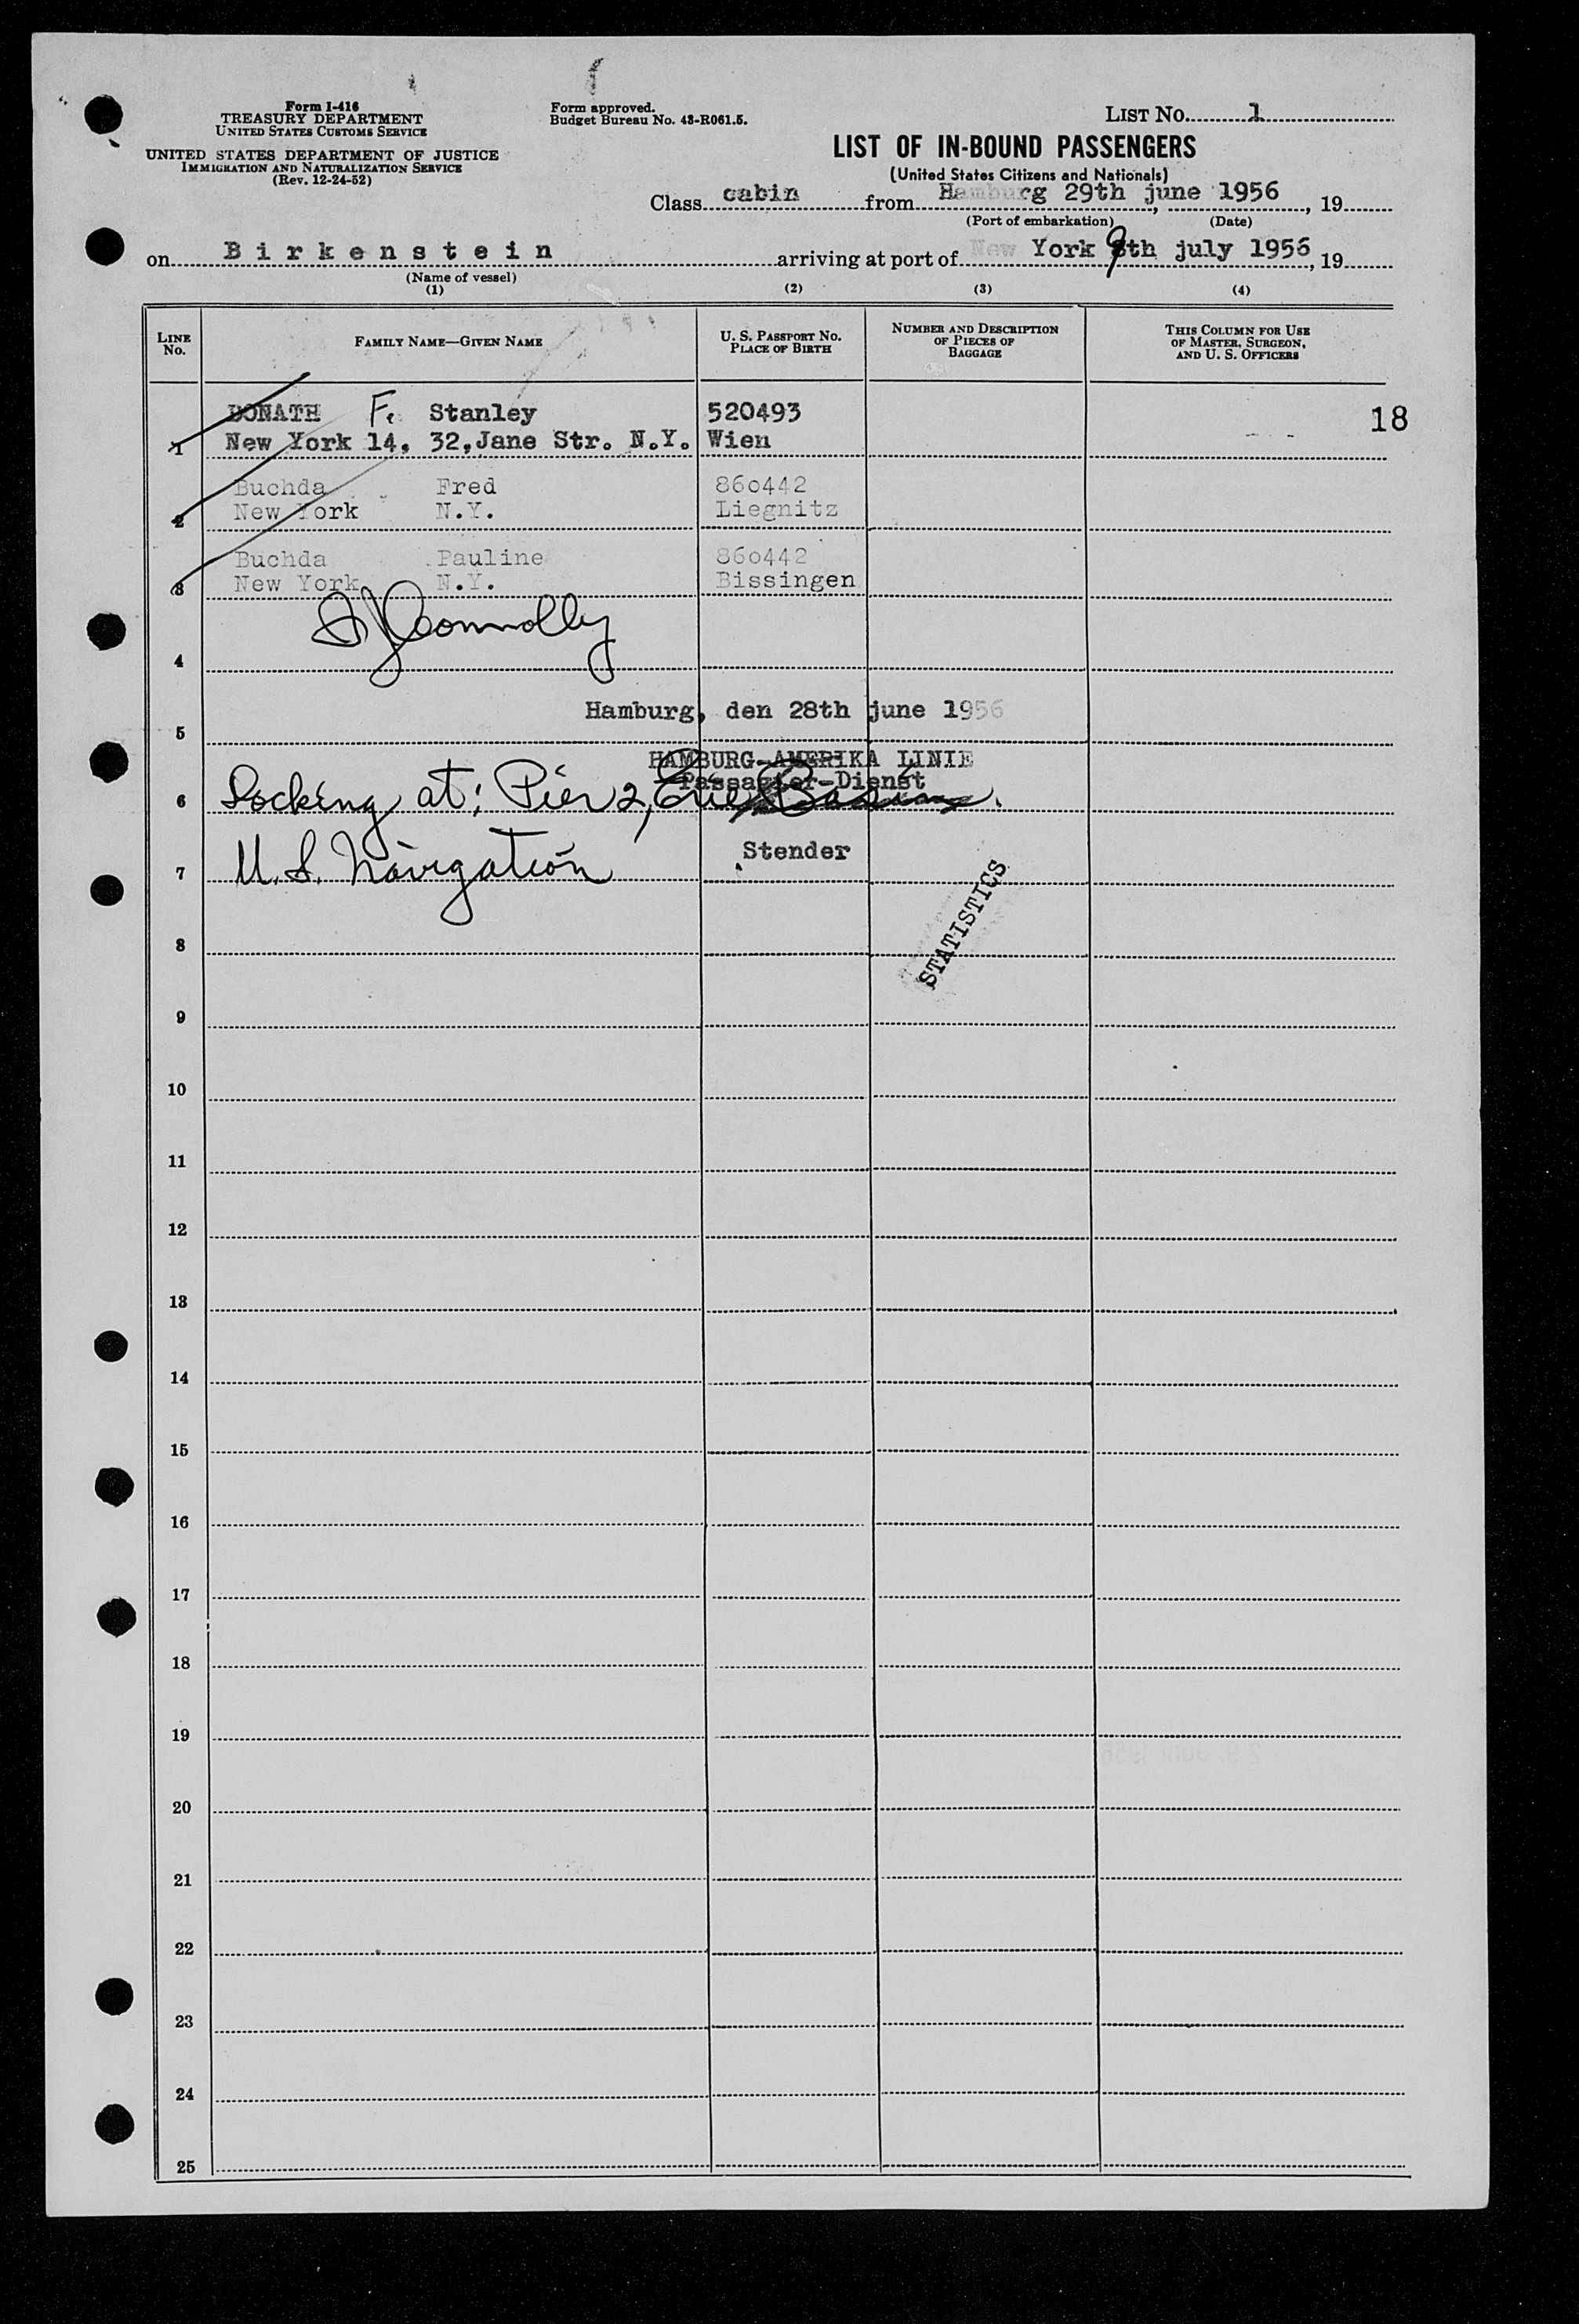 Form I-416
TREASURY DEPARTMENT
UNITED STATES CUSTOMS SERVICE
UNITED STATES DEPARTMENT OF JUSTICE
IMMIGRATION AND NATURALIZATION SERVICE
(Rev. 12-24-52)
Form approved.
Budget Bureau No. 43-R061.5.
LIST NO. 1
LIST OF IN-BOUND PASSENGERS
(United States Citizens and Nationals)
Class cabin from Hamburg 29th june 1956, 19
(Port of embarkation) (Date)
on Birkenstein arriving at port of New York 9th july 1956, 19
(Name of vessel)
(1) (2) (3) (4)
LINE No. FAMILY NAME—GIVEN NAME U. S. PASSPORT NO. PLACE OF BIRTH NUMBER AND DESCRIPTION OF PIECES OF BAGGAGE THIS COLUMN FOR USE OF MASTER, SURGEON, AND U. S. OFFICERS
DONATH F. Stanley 520493 18
1 New York 14, 32,Jane Str. N.Y. Wien
Buchda Fred 860442
2 New York N.Y. Liegnitz
Buchda Pauline 860442
3 New York N.Y. Bissingen
Connolly
4
Hamburg, den 28th june 1956
5
HAMBURG-AMERIKA LINIE
Passagier-Dienst
6 Docking at: Pier 2, Erie Basin.
Stender
7 U.S. Navigation
STATISTICS
8
9
10
11
12
13
14
15
16
17
18
19
20
21
22
23
24
25